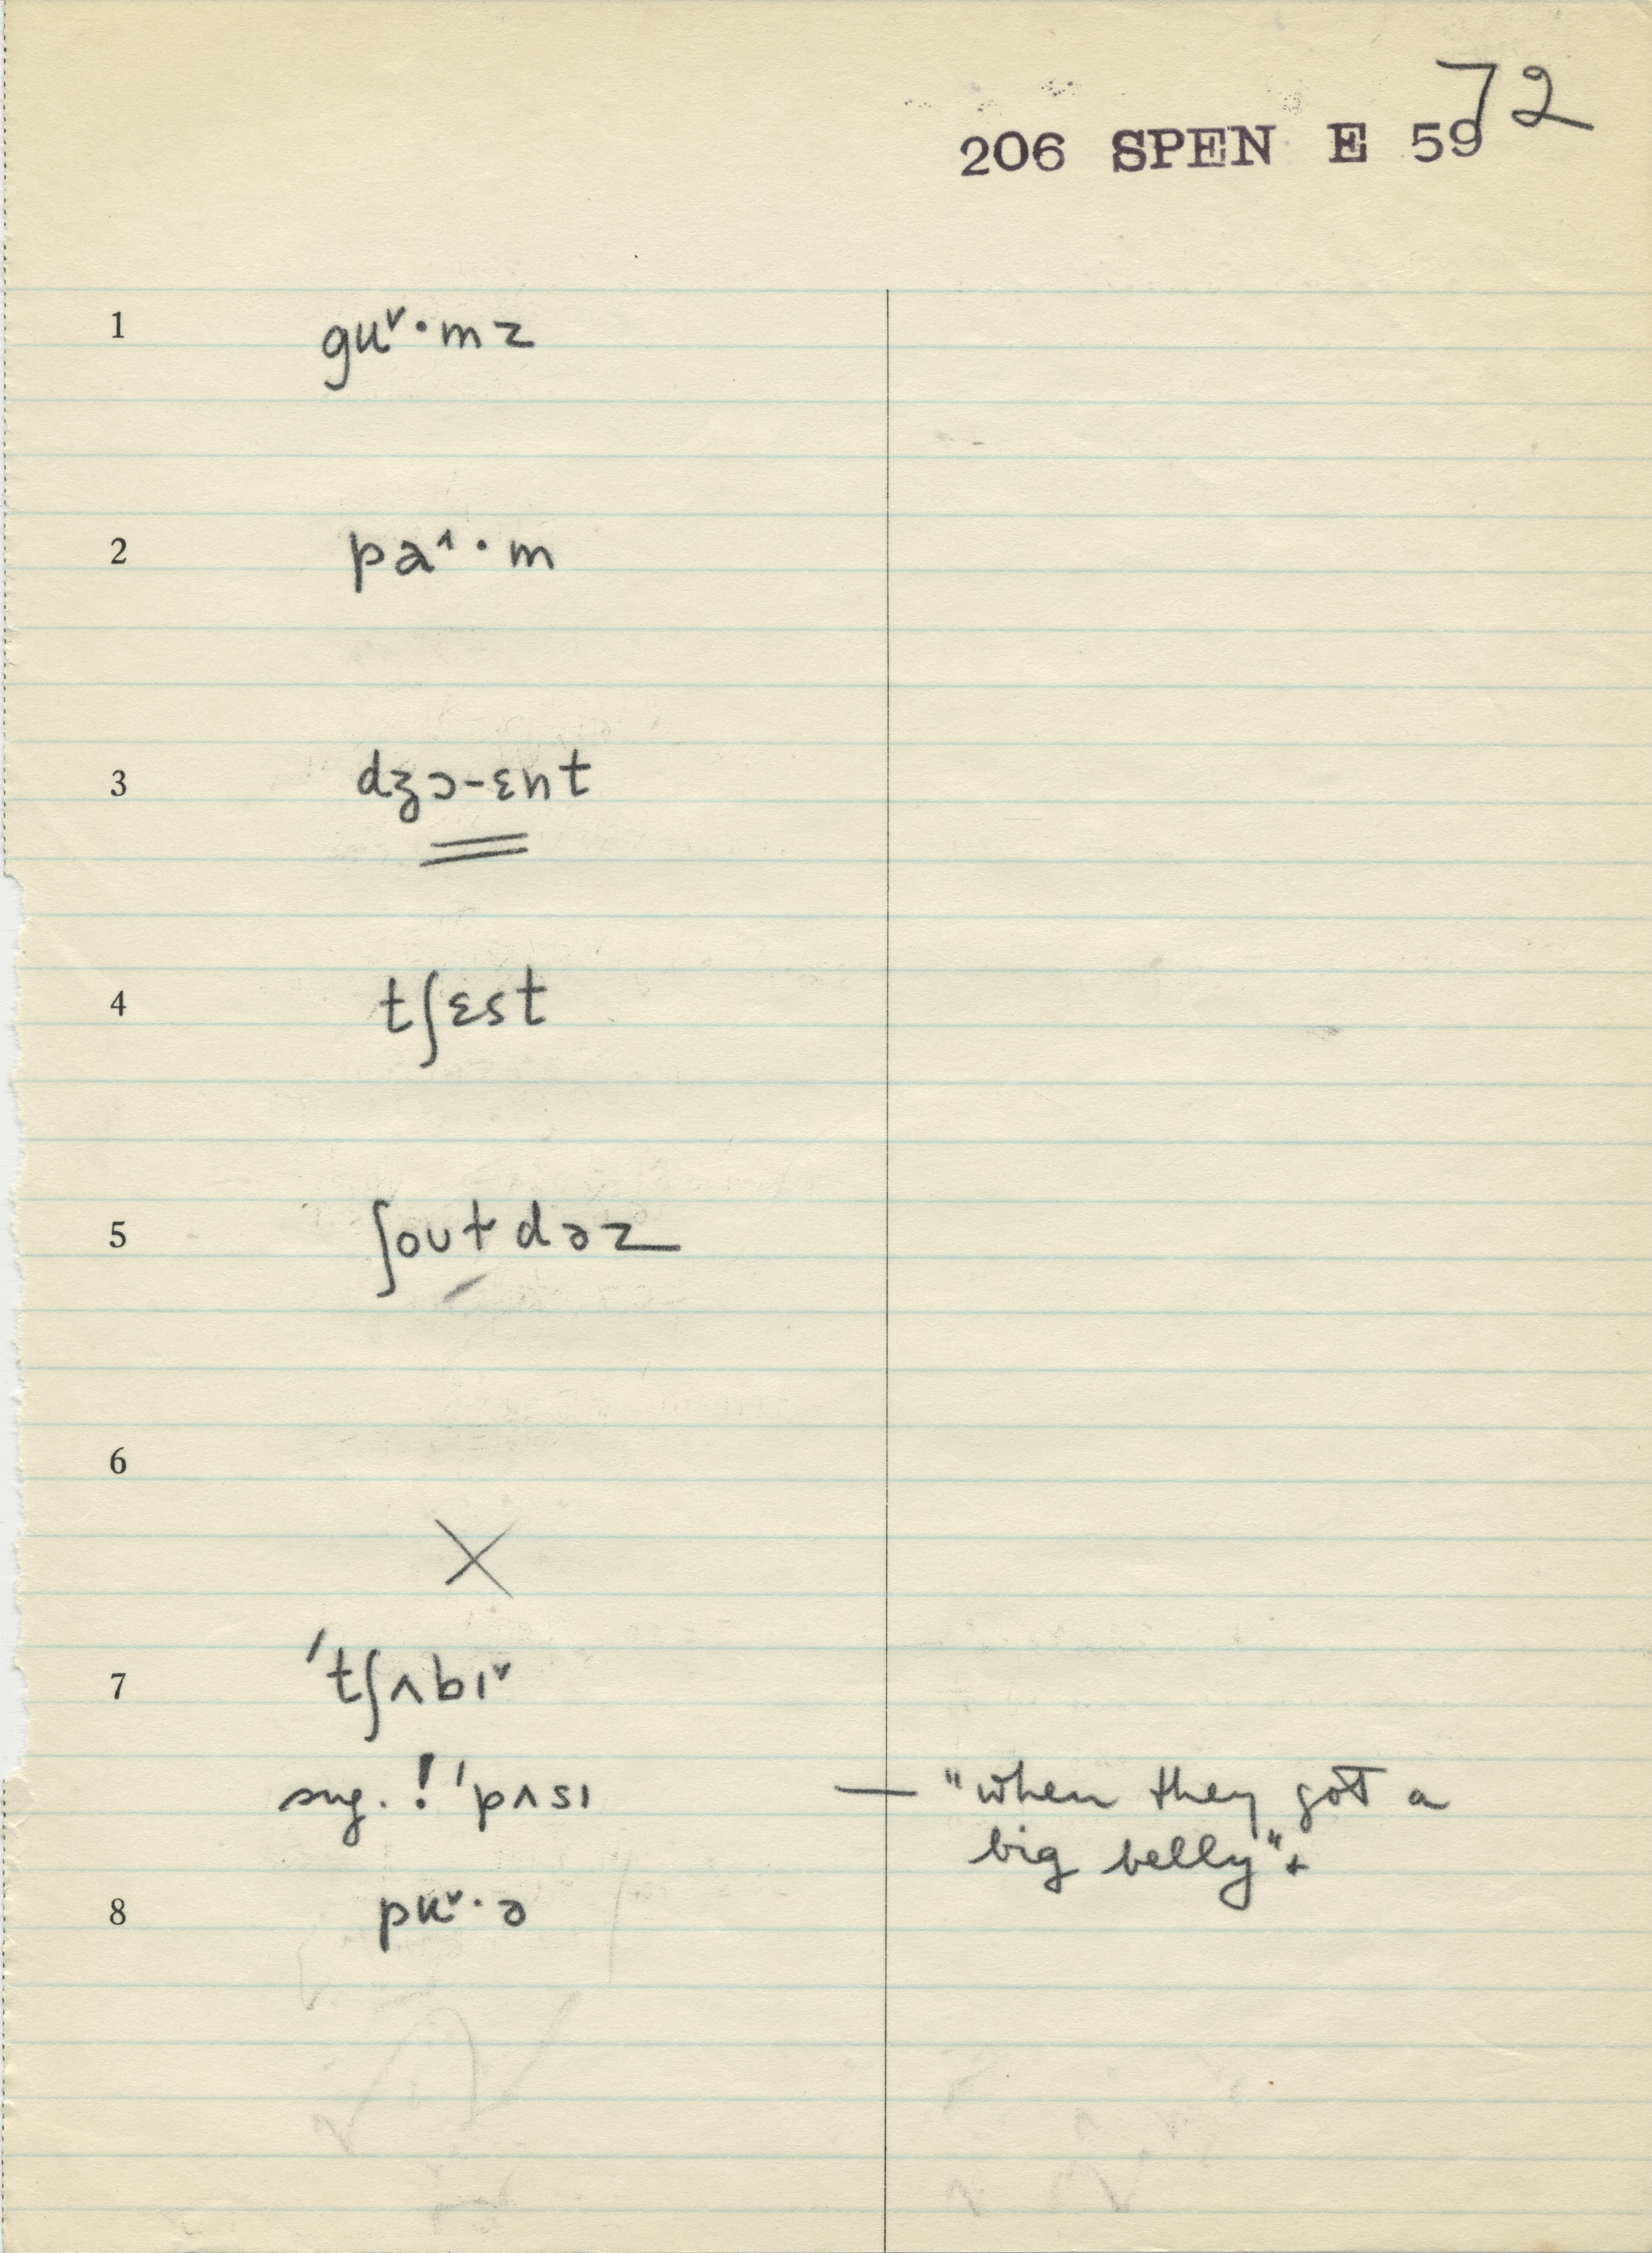 72
206 SPEN E 59
1 guᵛ·mz
2 pa^·m
3 dʒɔ-ɛnt
4 tʃɛst
5 ʃoutdəz
6
X
7 'tʃʌbɪᵛ
sug. ! 'pʌsɪ — "when they got a
big belly".
8 puᵛ·ə